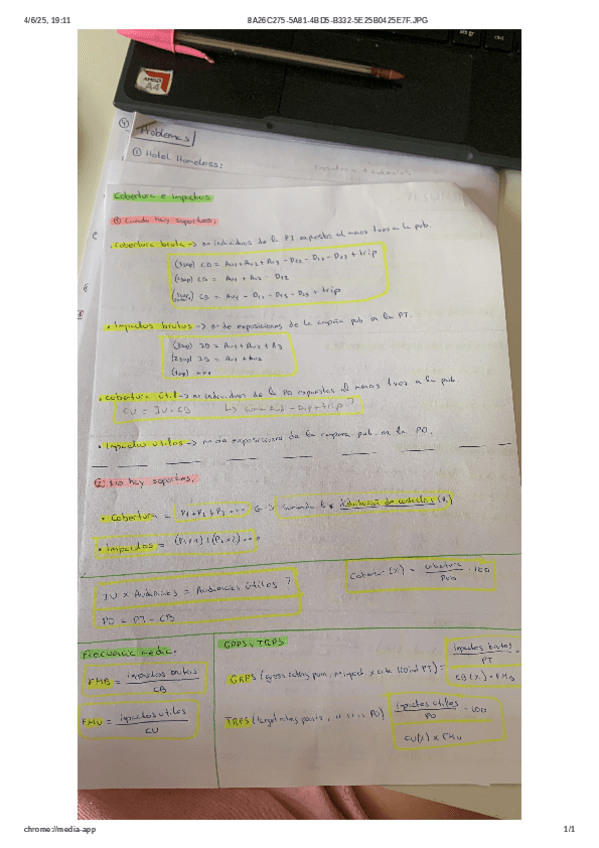 4/6/25, 19:11
8A26C275-5A81-4BD5-B332-5E25B0425E7F.JPG
AMD
A4
④ Problemas
① Hotel Homeless:
Cobertura e impactos
① Cuando hay soportes:
· Cobertura bruta → nº individuos de la PT expuestos al menos 1 vez a la pub.
(3sop) CB = Au1 + Au2 + Au3 - D12 - D13 - D23 + trip
(2sop) CB = Au1 + Au2 - D12
· Impactos brutos → nº de exposiciones de la campaña pub en la PT.
(3sop) IB = Au1 + Au2 + A3
(2sop) IB = Au1 + Au2
(1sop) ...
· Cobertura útil → nº individuos de la PO expuestos al menos 1 vez a la pub.
CU = IU · CB
· Impactos útiles → nº de exposiciones de la campaña pub. en la PO.
② No hay soportes:
· Cobertura = P1 + P2 + P3 ...
· Impactos = (P1×1) + (P2×2) ...
IU × Audiencias = Audiencias útiles ?
Cobertura (%) = cobertura / · 100
PO = PT - CB
Frecuencia media.
FMB = impactos brutos / CB
FMU = impactos útiles / CU
GRPS y TRPS
GRPS (gross rating points, nº impact x cada 100 ind PT) = impactos brutos / PT
CB (%) · FMB
TRPS (target rating points, " " " " PO) impactos útiles / PO · 100
CU(%) x FMU
chrome://media-app
1/1